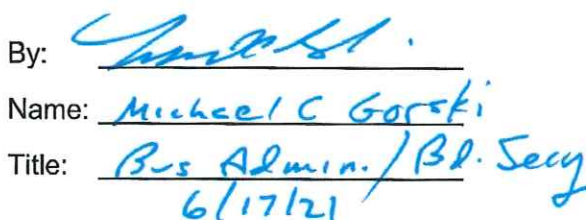 By:
Name: Michael C Gorski
Title: Bus Admin. / Bd. Secy
6/17/21